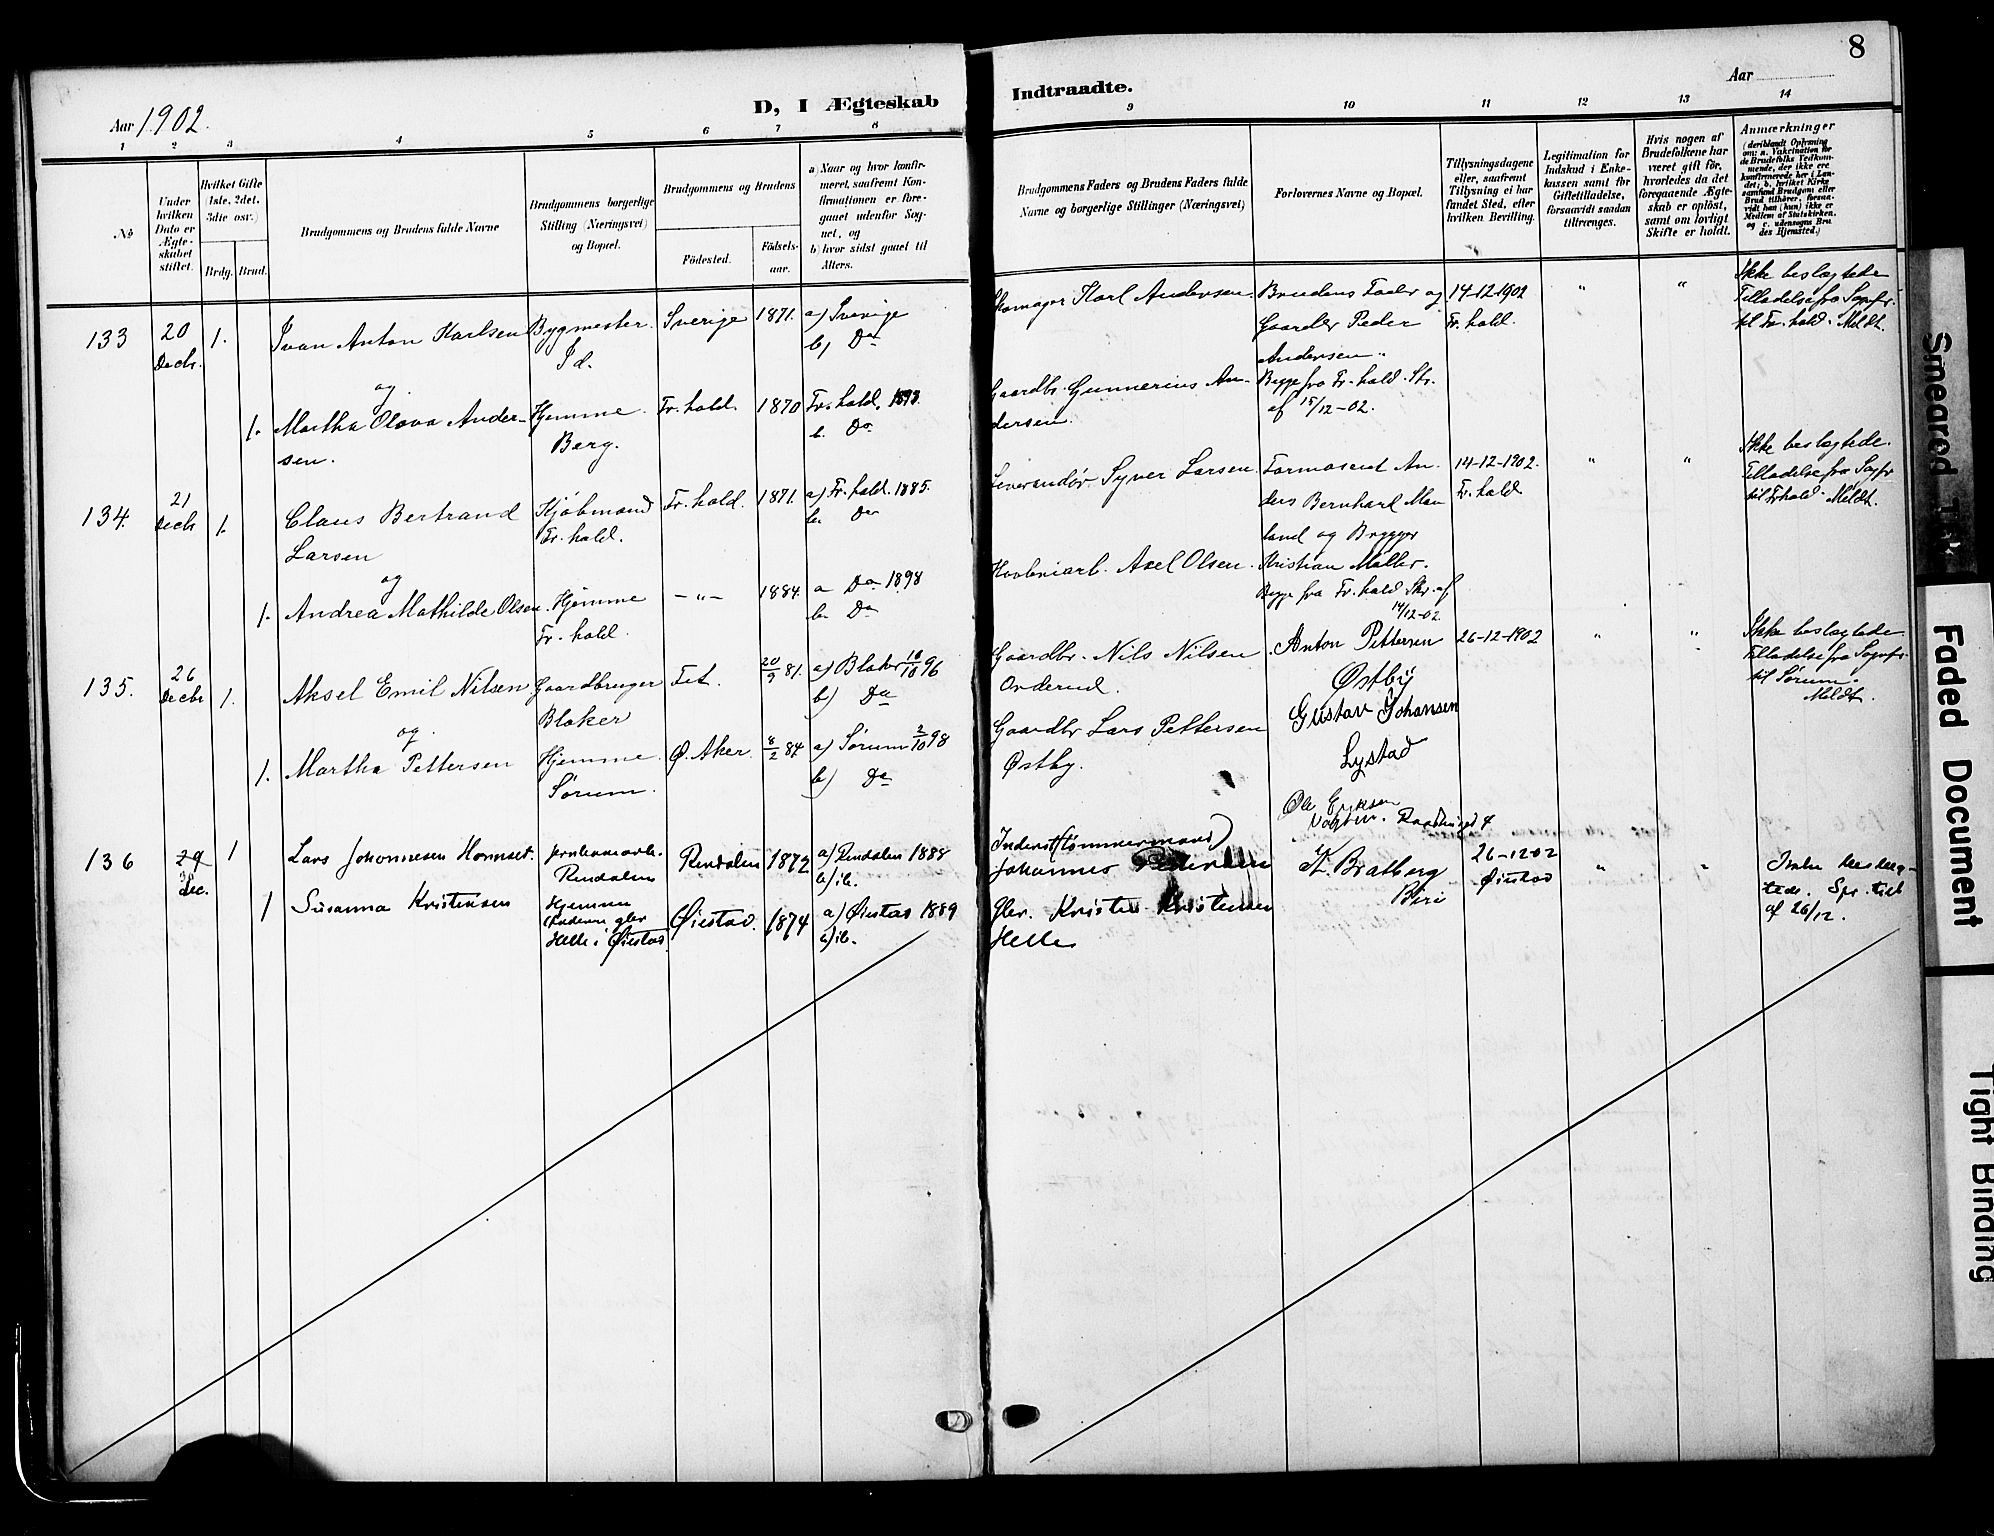 8
Aar 1902.
D, I Ægteskab
Indtraadte.
Aar
1 2 3 4 5 6 7 8 9 10 11 12 13 14
No
Under hvilken Dato er Ægteskabet stiftet.
Hvilket Gifte (1ste, 2det, 3die osv.)
Brdg. Brud.
Brudgommens og Brudens fulde Navne
Brudgommens borgerlige Stilling (Næringsvei) og Bopæl.
Brudgommens og Brudens
Födested.
Födsels-aar.
a) Naar og hvor konfir-
meret, saafremt Kon-
firmationen er fore-
gaaet udenfor Sog-
net, og
b) hvor sidst gaaet til
Alters.
Brudgommens Faders og Brudens Faders fulde
Navne og borgerlige Stillinger (Næringsvei)
Forlovernes Navne og Bopæl.
Tillysningsdagene
eller, saafremt
Tillysning ei har
fundet Sted, efter
hvilken Bevilling.
Legitimation for
Indskud i Enke-
kassen samt for
Giftetilladelse,
forsaavidt saadan
tiltrænges.
Hvis nogen af
Brudefolkene har
været gift för,
hvorledes da det
foregaaende Ægte-
skab er oplöst,
samt om lovligt
Skifte er holdt.
Anmærkninger
(deriblandt Oplysning
om: a. Vakcination for
de Brudefolks Vedkom-
mende, der ikke ere
konfirmerede her i Lan-
det; b. hvilket Kirke
samfund Brudgom eller
Brud tilhörer, forsaa-
vidt han (hun) ikke er
Medlem af Statskirken,
og c. udensogns Bru
des Hjemsted.)
133
20 Decbr.
1.
Ivan Anton Karlsen
Bygmester.
Id.
Sverige
1871.
a) Sverige
b) Do
Skomager Karl Andersen.
Brudens Fader og
Gaardbr Peder
Andersen.
Begge fra Fr.hald. Str.
af 15/12-02.
14-12-1902
Fr. hald.
"
"
Ikke beslægtede
Tilladelse fra Sognpr.
til Fr. hald. Meldt.
og
1.
Martha Olava Ander-
sen.
Hjemme.
Berg.
Fr. hald.
1870
Fr. hald.
b. Do
Gaardbr. Gunnerius An-
dersen.
134.
21 Decbr
1.
Claus Bertrand
Larsen
Kjøbmand
Fr. hald.
Fr. hald.
1871.
a) Fr. hald. 1885.
b. Do
Leverandør Syver Larsen.
Formand An-
ders Bernhard
land og Brygger
Kristian Møller.
Begge fra Fr. hald Str. af
14/12-02
14-12-1902.
Fr. hald
"
"
Ikke beslægtede.
Tilladelse fra Sognpr
til Fr.hald. Meldt.
og
1.
Andrea Mathilde Olsen.
Hjemme
Fr. hald.
-"-
1884.
a Do 1898
b. Do
Axel Olsen
135.
26 Decbr
1.
Aksel Emil Nilsen
Gaardbruger
Blaker
Fet.
20/9 81.
a) Blaker 18/10 96
b) Do
Gaardbr. Nils Nilsen
Orderud.
Anton Pettersen
Østby
Gustav Johansen
Lystad
26-12-1902
"
"
Ikke beslægtede
Tilladelse fra Sognpr.
til Sørum.
Meldt.
og
1.
Martha Pettersen
Hjemme
Sørum.
Ø. Aker.
8/2 84
a) Sørum 2/10 98
b) Do
Gaardbr Lars Pettersen
Østby.
136
29 Dec.
1
Lars Johannesen Hornset.
Jernbanearb.
Rendalen
Rendalen
1872
a) Rendalen 1888
b) ib.
Inderst (tømmermand)
Johannes Pedersen
Ole Eriksen
K. Bratberg
Biri
26-1202
Øiestad
"
"
af 26/12.
1
Susanna Kristensen
Hjemme
Helle i Øiestad
Øiestad.
1874
a) Øiestad 1889
b) ib.
Gbr. Kristen Kristensen
Helle
Smeared
Faded Document
Tight Binding